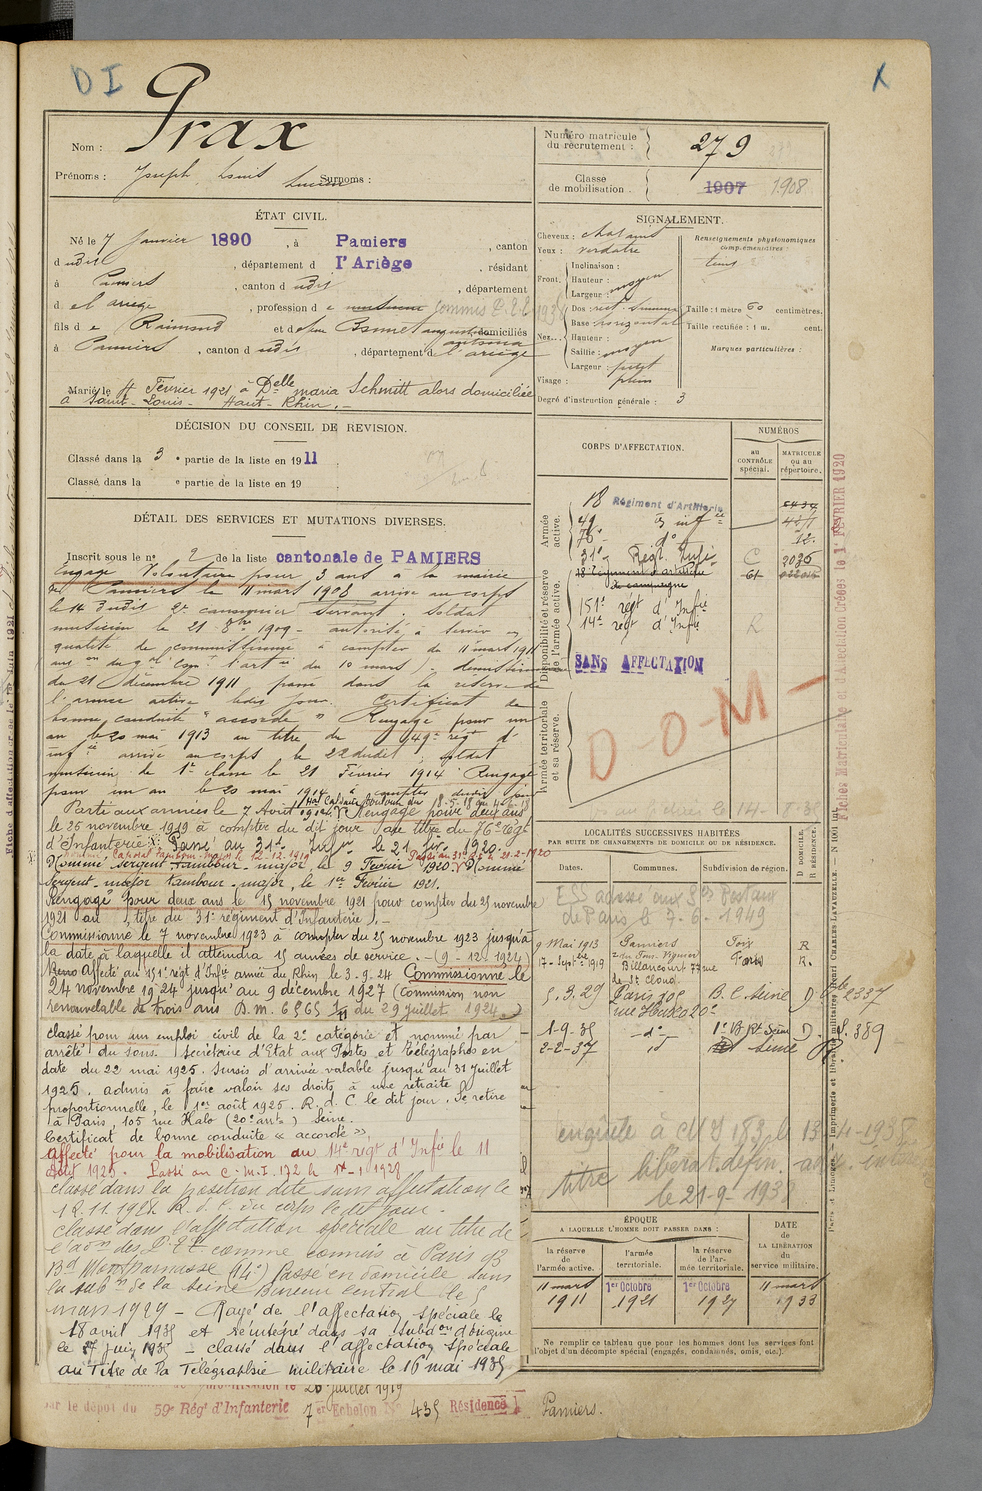 D I
X
Nom : Prax
Prénoms : Joseph Louis Lucien Surnoms :
Numéro matricule du recrutement : 279
Classe de mobilisation : 1907 1908
ÉTAT CIVIL.
Né le 7 Janvier 1890, à Pamiers, canton
dudit, département de l'Ariège, résidant
à Pamiers, canton dudit, département
d el ariege, profession de musicien Commis P.T.T.
fils de Raimond et de domiciliés
à Pamiers, canton dudit, département d l'ariège
Marié le 4 Février 1921 à Delle maria Schmitt alors domiciliée
à Saint-Louis- Haut-Rhin.-
SIGNALEMENT.
Cheveux : chatains
Yeux : verdatre
Front. Inclinaison :
Hauteur : moyen
Largeur :
Nez. Dos : rect.
Base : horizontal
Hauteur :
Saillie : moyen
Largeur : petit
Visage : plein
Degré d'instruction générale : 3
Renseignements physionomiques complémentaires :
teint
Taille : 1 mètre 60 centimètres.
Taille rectifiée : 1 m. cent.
Marques particulières :
DÉCISION DU CONSEIL DE REVISION.
Classé dans la 3e partie de la liste en 1911
Classé dans la e partie de la liste en 19
DÉTAIL DES SERVICES ET MUTATIONS DIVERSES.
Inscrit sous le n° 2 de la liste cantonale de PAMIERS
Engagé Volontaire pour 3 ans à la mairie
de Pamiers le 11 mars 1908 arrivé au corps
le 14 dudit 2e canonnier servant. Soldat
musicien le 21 8bre 1909 - autorisé à servir en
qualité de commissionné à compter du 11 mars 1911
du 10 mars). démissionne
du 21 décembre 1911 passé dans la réserve de
l'armée active ledit jour. Certificat de
bonne conduite "accordé" Rengagé pour un
an le 20 mai 1913 au titre du 49e régt d'
infie arrivé au corps le 22 dudit ; soldat
musicien de 1e classe le 21 Février 1914 Rengagé
pour un an le 20 mai 1914 à compter dudit jour
Parti aux armées le 7 Août 1914. Rengagé pour deux ans
le 25 novembre 1919 à compter du dit jour au titre du 76e régt
d'Infanterie. Passé au 31e Infie le 21 fév. 1920.
Caporal tambour-major le 12-12-1919
Nommé sergent tambour-major le 9 Février 1920. Nommé
sergent-major tambour-major, le 1er Février 1921.
Rengagé pour deux ans le 15 novembre 1921 pour compter du 25 novembre
1921 au titre du 31e régiment d'Infanterie).-
Commissionné le 7 novembre 1923 à compter du 25 novembre 1923 jusqu'à
la date à laquelle il atteindra 15 années de service.-(9-12-1924)
Affecté au 151e régt d'Infie armée du Rhin le 3.9.24 Commissionné le
24 novembre 1924 jusqu'au 9 décembre 1927 (Commission non
renouvelable de trois ans D.M. 6565 du 29 juillet 1924.)
classé pour un emploi civil de la 2e catégorie et nommé par
arrêté du sous. Secrétaire d'Etat aux Postes et Télégraphes en
date du 22 mai 1925. Sursis d'arrivée valable jusqu'au 31 juillet
1925. admis à faire valoir ses droits à une retraite
proportionnelle, le 1er août 1925. R. d. C. le dit jour. Se retire
à Paris, 105 rue Haxo (20e arrt) Seine.
Certificat de bonne conduite « accordé ».
Affecté pour la mobilisation au 14e régt d'Infie le 11
août 1925. Passé au C.M.I. 172 le 1er-1-1928
Classé dans la position dite sans affectation le
12.11.1928. R. d. C. du corps le dit jour.
Classé dans l'affectation spéciale au titre de
l'aon des P.T.T. comme commis à Paris 93
Bd Montparnasse (14e) Passé en domicile dans
la subdn de la Seine Bureau central le 5
mars 1929 - Rayé de l'affectation spéciale le
18 avril 1935 et réintégré dans sa subdon d'origine
le 27 juin 1935 - classé dans l'affectation spéciale
au Titre de la Télégraphie militaire le 16 mai 1935
26 juillet 1919
par le dépôt du 59e Régt d'Infanterie 7e Echelon N° 435 Résidence Pamiers.
CORPS D'AFFECTATION.
NUMÉROS
au CONTRÔLE spécial.
MATRICULE ou au répertoire.
Armée active.
18 Régiment d'Artillerie
49 infie
76e do
12.
31e Régt Infie C 2036
Disponibilité et réserve de l'armée active.
18 Régiment d'artillerie de campagne 61
151e régt d'Infie
14e régt d'Infie R
SANS AFFECTATION
Armée territoriale et sa réserve.
D-O-M-
Fiches Matriculaire et d'Affectation Créées le 1er FÉVRIER 1920
LOCALITÉS SUCCESSIVES HABITÉES
PAR SUITE DE CHANGEMENTS DE DOMICILE OU DE RÉSIDENCE.
Dates. Communes. Subdivision de région.
D DOMICILE. R RÉSIDENCE.
de Paris le 7-6-1949
9 Mai 1913 Pamiers Foix R
17-Septbre 1919 Billancourt 77 rue de St Cloud. Paris R.
5.3.29 Paris 105 rue Haxo 20e B.C. Seine D 2337
1-9-35 -do- 1er B Seine D. 389
2-2-37 Seine R.
enquête à 183 le 13-4-1938
titre libérat. défin.
le 21-9-1938
ÉPOQUE
A LAQUELLE L'HOMME DOIT PASSER DANS :
la réserve de l'armée active.
l'armée territoriale.
la réserve de l'armée territoriale.
DATE de LA LIBÉRATION du service militaire.
11 mars 1911
1er Octobre 1921
1er Octobre 1927
11 mars 1933
Ne remplir ce tableau que pour les hommes dont les services font
l'objet d'un décompte spécial (engagés, condamnés, omis, etc.).
Paris et Limoges. — Imprimerie et librairie militaires Henri CHARLES-LAVAUZELLE.